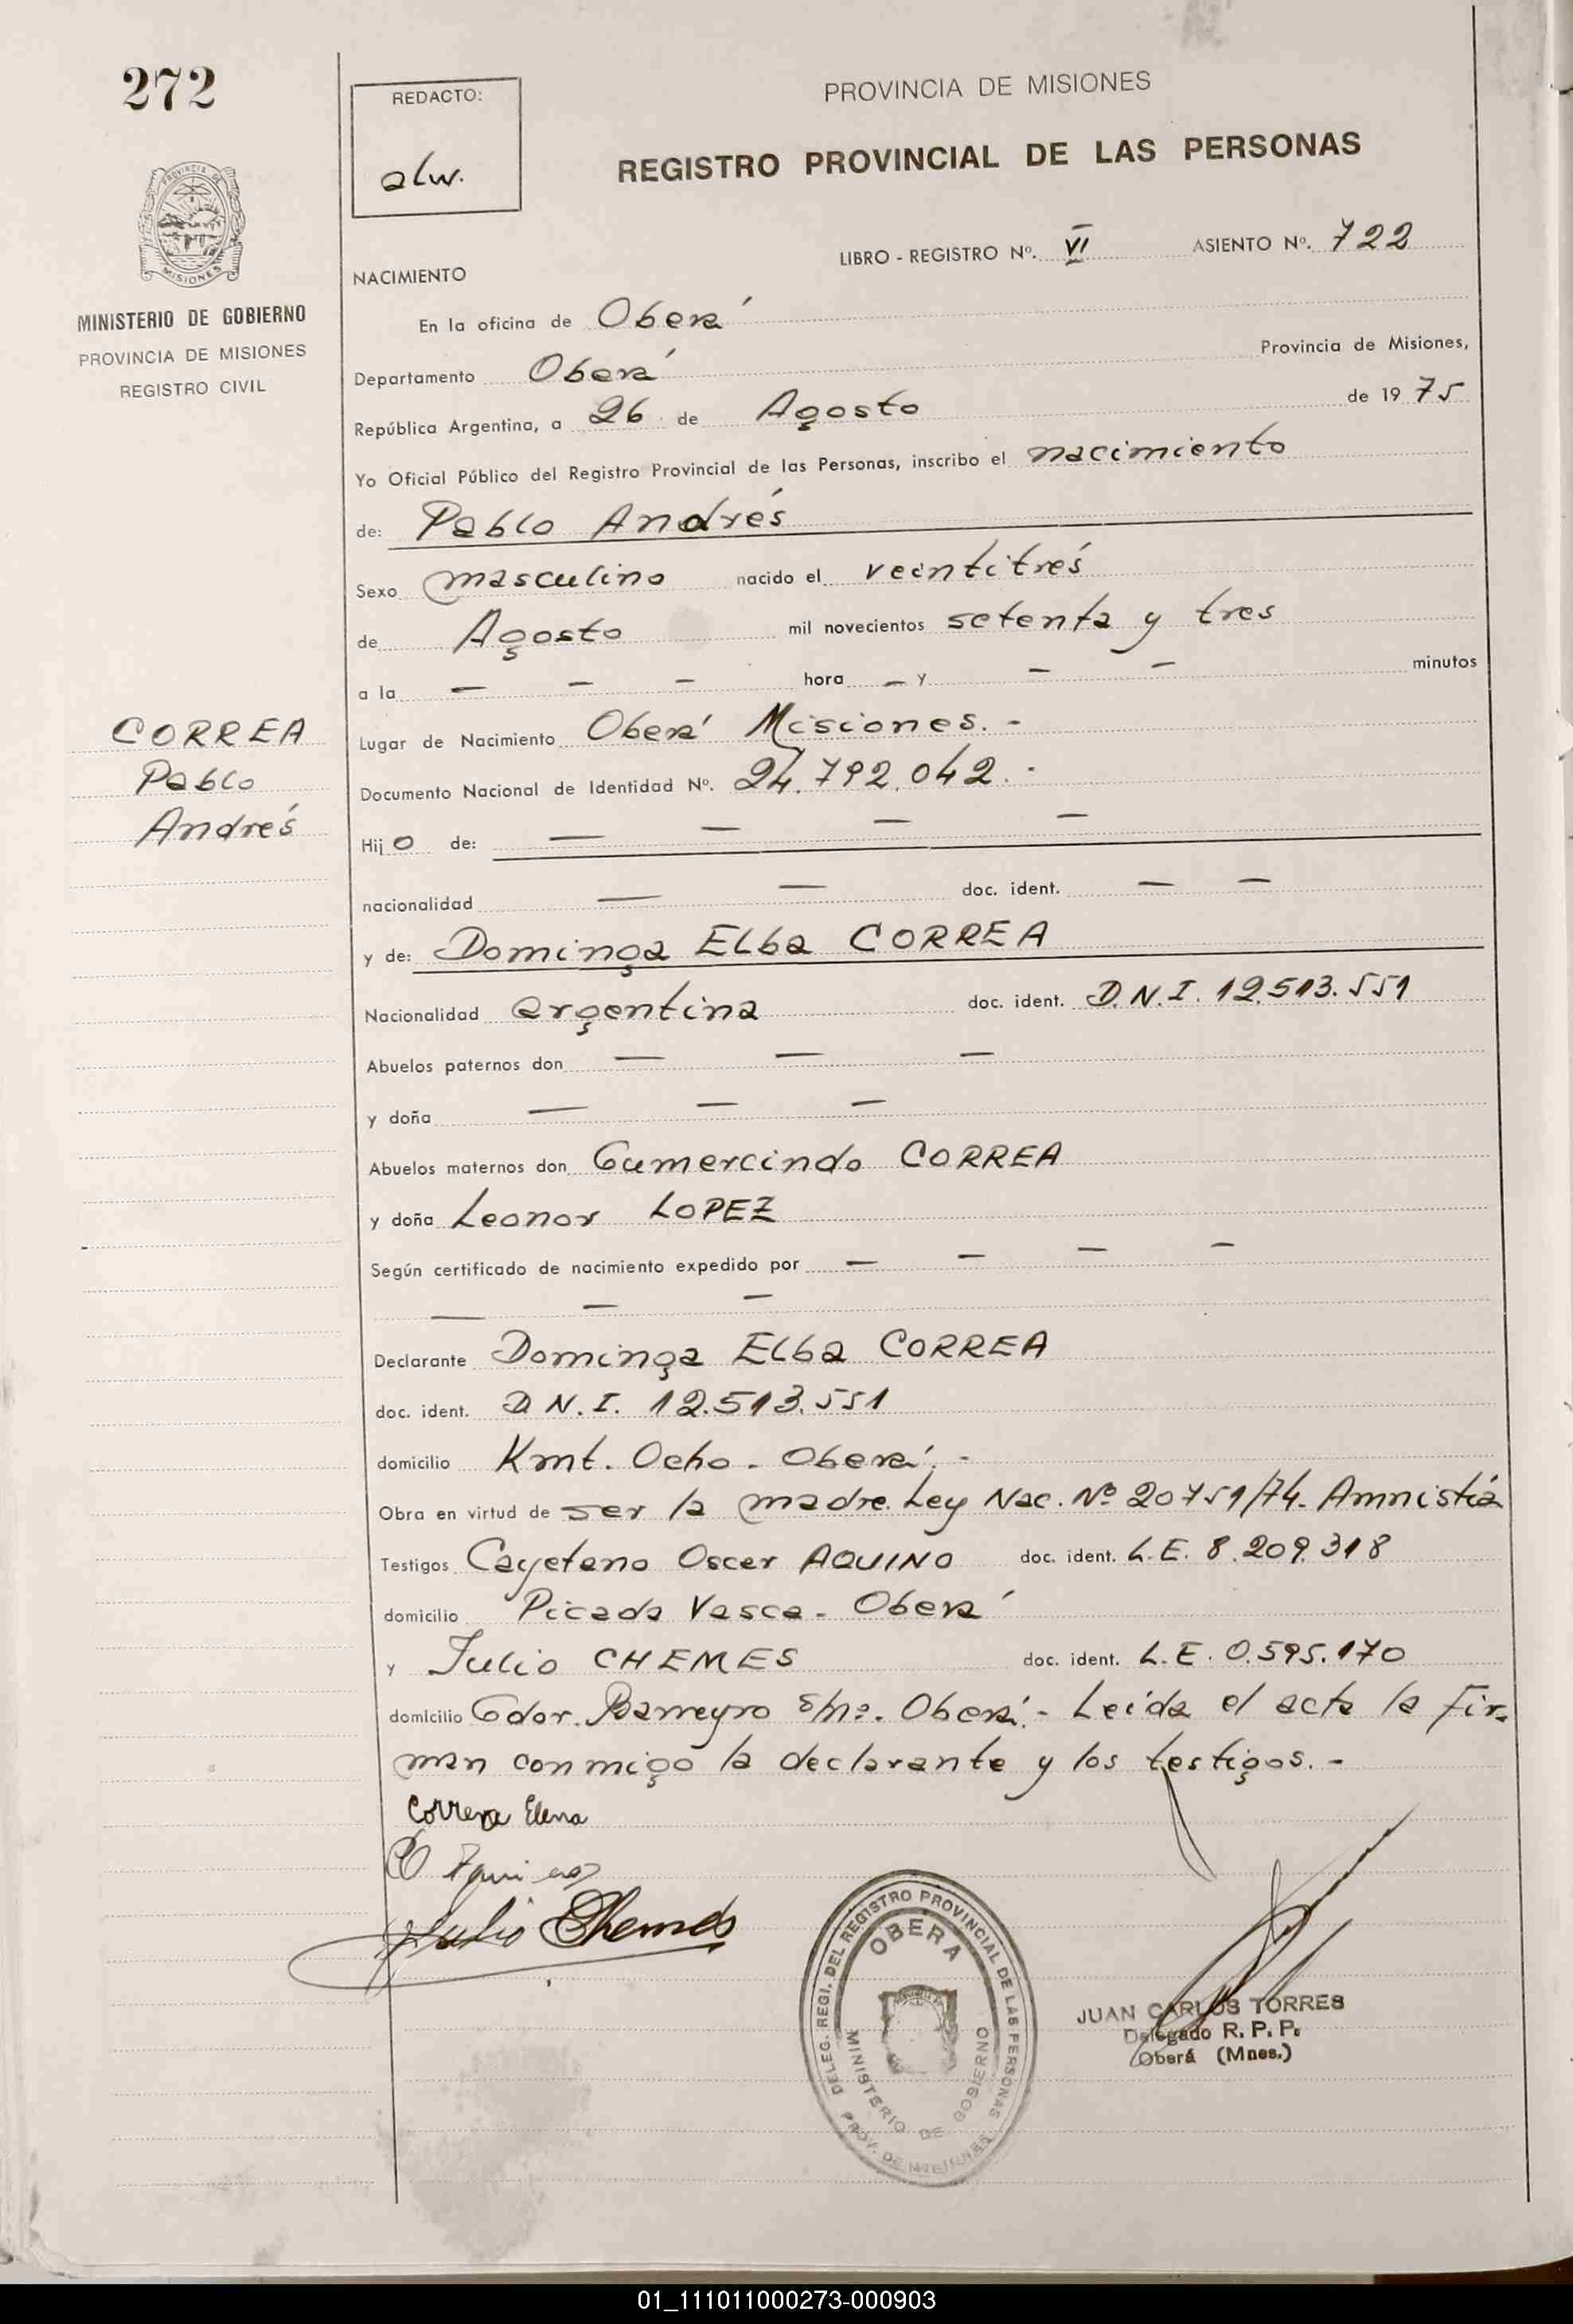 272
REDACTO:
alw.
PROVINCIA DE MISIONES
REGISTRO PROVINCIAL DE LAS PERSONAS
PROVINCIA DE
MISIONES
MINISTERIO DE GOBIERNO
PROVINCIA DE MISIONES
REGISTRO CIVIL
LIBRO - REGISTRO Nº. VI ASIENTO Nº. 722
NACIMIENTO
En la oficina de Oberá
Departamento Oberá Provincia de Misiones,
República Argentina, a 26 de Agosto de 1975
Yo Oficial Público del Registro Provincial de las Personas, inscribo el nacimiento
de: Pablo Andrés
Sexo masculino nacido el veintitrés
de Agosto mil novecientos setenta y tres
a la — — — hora — y — — minutos
CORREA
Pablo
Andrés
Lugar de Nacimiento Oberá Misiones. -
Documento Nacional de Identidad Nº. 24.792.042. -
Hijo de: — — — —
nacionalidad — — doc. ident. — —
y de: Dominga Elba CORREA
Nacionalidad argentina doc. ident. D.N.I. 12.513.551
Abuelos paternos don — — —
y doña — — —
Abuelos maternos don Gumercindo CORREA
y doña Leonor LOPEZ
Según certificado de nacimiento expedido por — — — —
— — —
Declarante Dominga Elba CORREA
doc. ident. D.N.I. 12.513.551
domicilio Kmt. Ocho - Oberá. -
Obra en virtud de ser la madre. Ley Nac. Nº 20751/74. Amnistía
Testigos Cayetano Oscar AQUINO doc. ident. L.E. 8.209.318
domicilio Picada Vasca - Oberá
y Julio CHEMES doc. ident. L.E. 0.595.170
domicilio Gdor. Barreyro s/nº. Oberá. - Leída el acta la fir-
man conmigo la declarante y los testigos. -
Correa Elena
Julio Chemes
DELEG. REGI. DEL REGISTRO PROVINCIAL DE LAS PERSONAS
OBERA
MINISTERIO DE GOBIERNO
PROV. DE MISIONES
JUAN CARLOS TORRES
Delegado R. P. P.
Oberá (Mnes.)
01_111011000273-000903